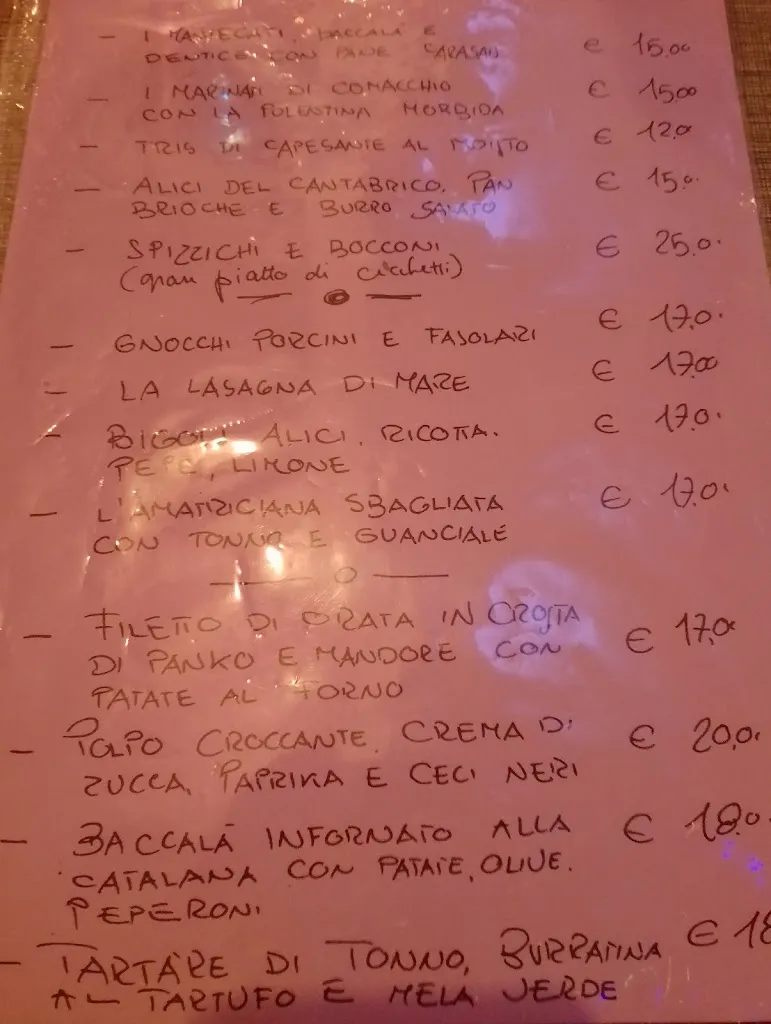 - I MANTECATI, BACCALÀ E € 15.00
DENTICE CON PANE CARASAU
- I MARINATI DI COMACCHIO € 15.00
CON LA POLENTINA MORBIDA
- TRIS DI CAPESANTE AL MOJITO € 12.0
- ALICI DEL CANTABRICO, PAN € 15.0.
BRIOCHE E BURRO SALATO
- SPIZZICHI E BOCCONI € 25.0.
(gran piatto di cicchetti)
- GNOCCHI PORCINI E FASOLARI € 17.0.
- LA LASAGNA DI MARE € 17.00
- BIGOLI ALICI, RICOTTA, € 17.0.
PEPE, LIMONE
- L'AMATRICIANA SBAGLIATA € 17.0.
CON TONNO E GUANCIALE
- FILETTO DI ORATA IN CROSTA € 17.00
DI PANKO E MANDORLE CON
PATATE AL FORNO
- POLPO CROCCANTE, CREMA DI € 20.0.
ZUCCA, PAPRIKA E CECI NERI
- BACCALÀ INFORNATO ALLA € 18.0.
CATALANA CON PATATE, OLIVE,
PEPERONI
- TARTARE DI TONNO, BURRATINA € 18
AL TARTUFO E MELA VERDE